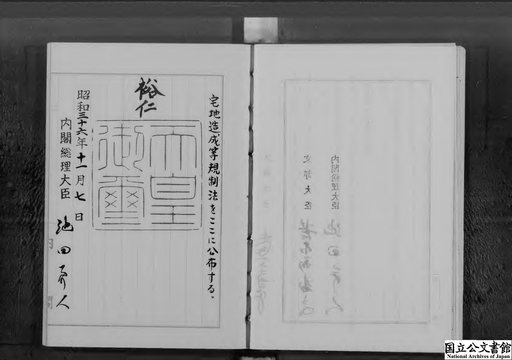 宅地造成等規制法をここに公布する。
裕仁
天皇御璽
昭和三十六年十一月七日
内閣総理大臣 池田勇人
国立公文書館
National Archives of Japan